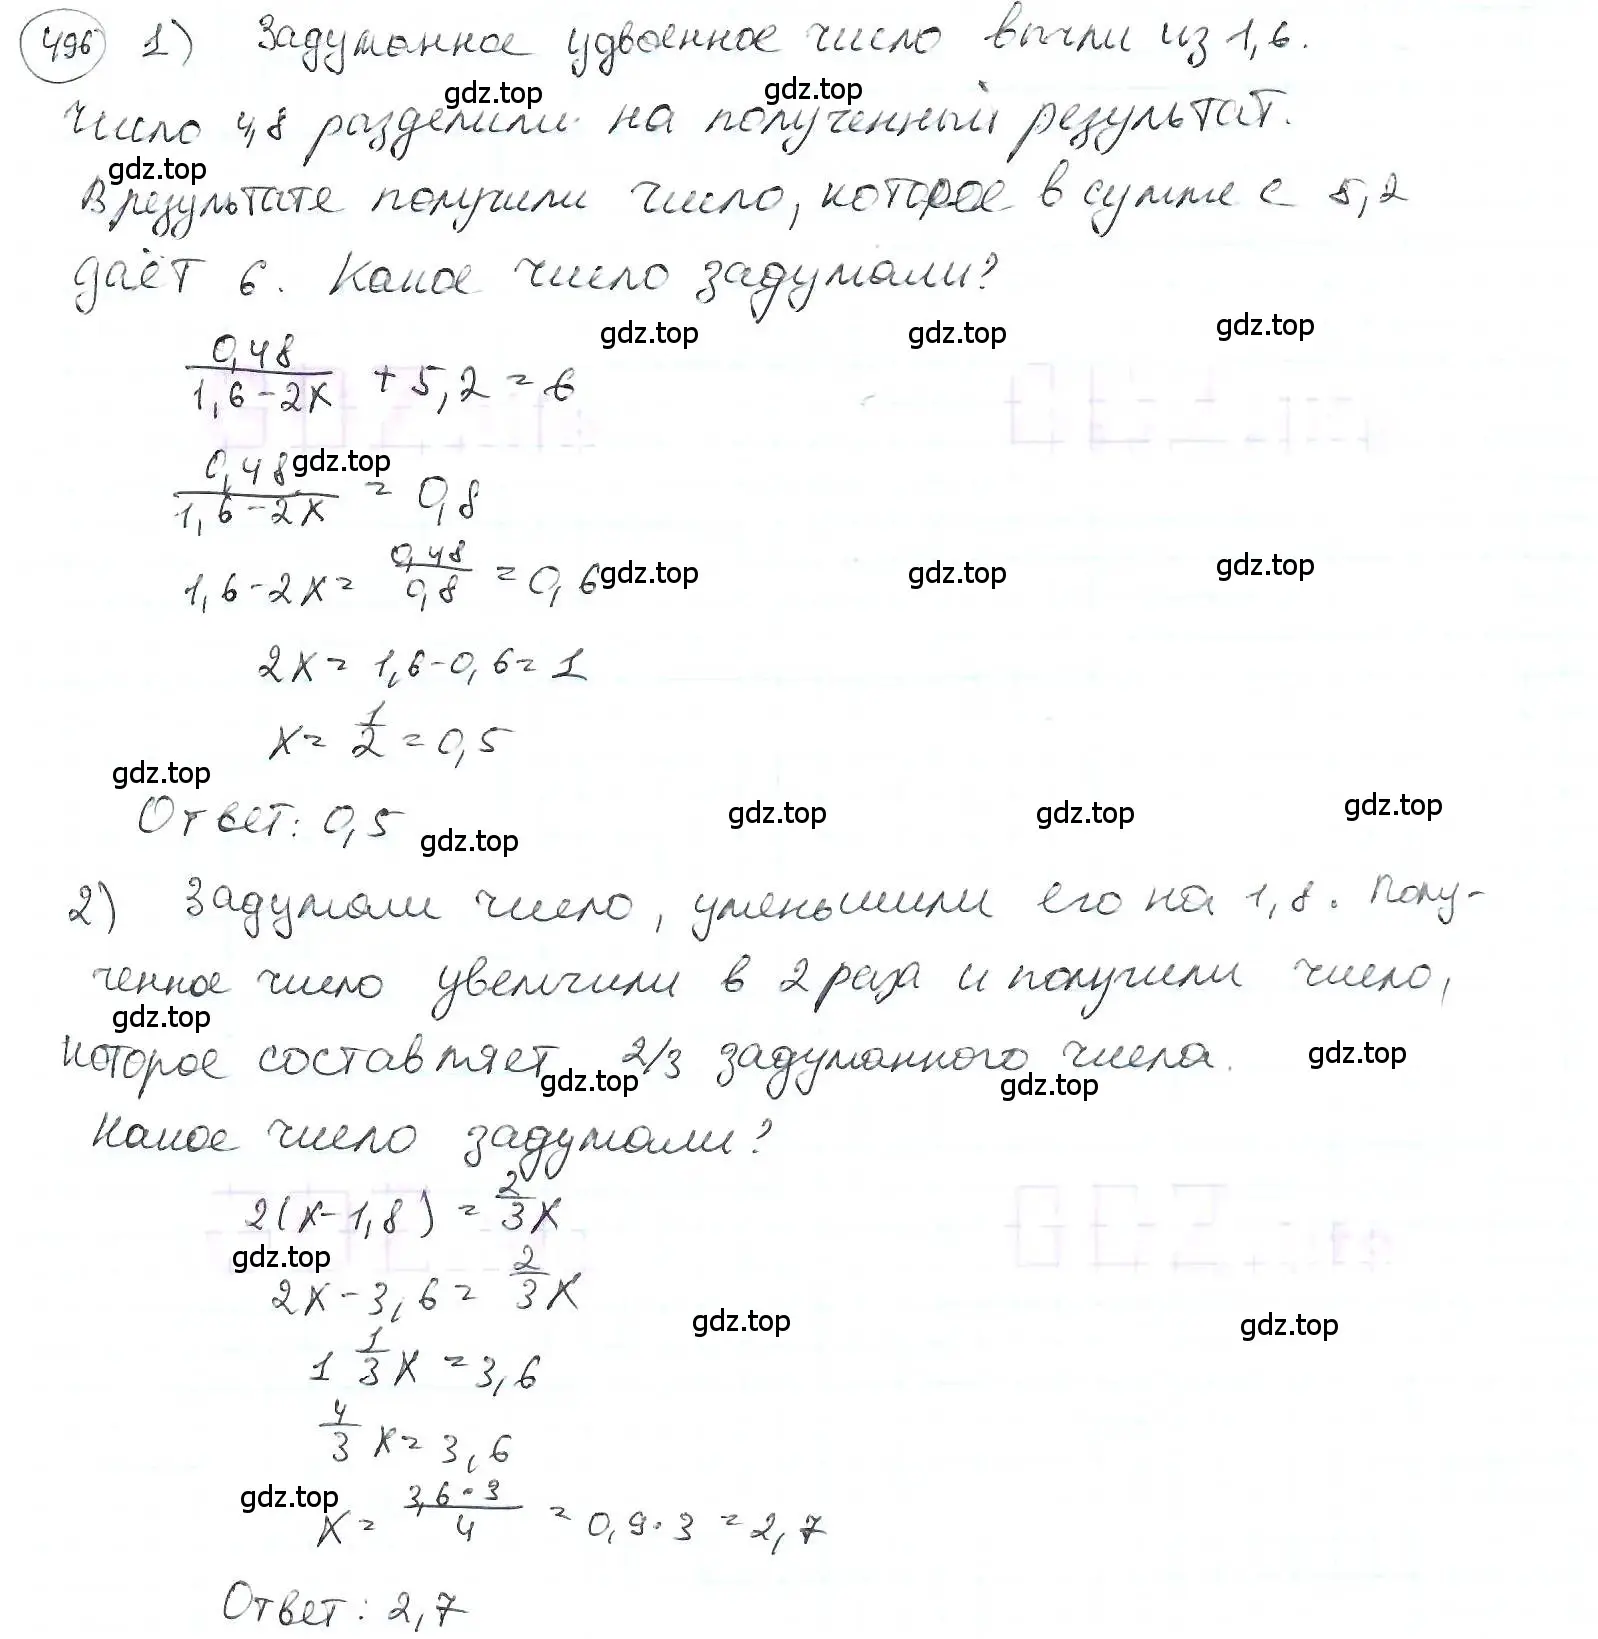 496 1) Задуманное удвоенное число вычли из 1,6.
gdz.top gdz.top
Число 4,8 разделили на полученный результат.
gdz.top
В результате получили число, которое в сумме с 5,2
даёт 6. Какое число задумали?
gdz.top gdz.top gdz.top
0,48/(1,6-2x) + 5,2 = 6
gdz.top
0,48/(1,6-2x) = 0,8
1,6-2x = 0,48/0,8 = 0,6
gdz.top gdz.top gdz.top
2x = 1,6-0,6 = 1
x = 1/2 = 0,5
gdz.top
Ответ: 0,5
gdz.top gdz.top gdz.top gdz.top
2) Задумали число, уменьшили его на 1,8. Полу-
ченное число увеличили в 2 раза и получили число,
gdz.top
которое составляет 2/3 задуманного числа.
gdz.top gdz.top gdz.top
Какое число задумали?
2(x-1,8) = 2/3 x
gdz.top
2x-3,6 = 2/3 x
gdz.top gdz.top
1 1/3 x = 3,6
4/3 x = 3,6
gdz.top
x = 3,6·3/4 = 0,9·3 = 2,7
Ответ: 2,7